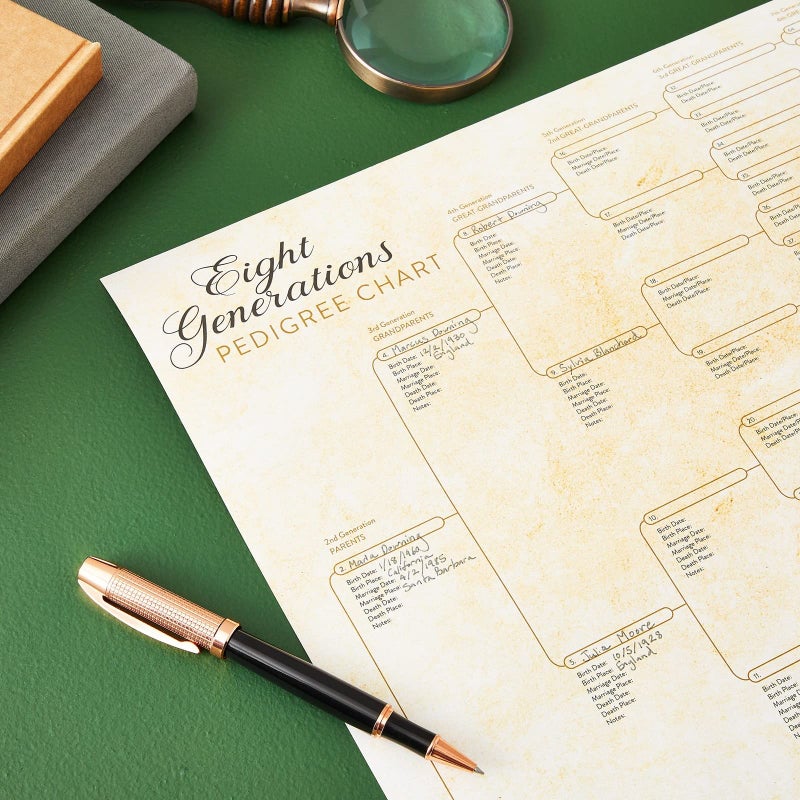 Eight
Generations
PEDIGREE CHART
2nd Generation
PARENTS
2. Maria Downing
Birth Date: 1/18/1960
Birth Place: California
Marriage Date: 4/2/1985
Marriage Place: Santa Barbara
Death Date:
Death Place:
Notes:
3rd Generation
GRANDPARENTS
4. Marcus Downing
Birth Date: 12/2/1930
Birth Place: England
Marriage Date:
Marriage Place:
Death Date:
Death Place:
Notes:
5. Julia Moore
Birth Date: 10/5/1928
Birth Place: England
Marriage Date:
Marriage Place:
Death Date:
Death Place:
Notes:
4th Generation
GREAT GRANDPARENTS
8. Robert Downing
Birth Date:
Birth Place:
Marriage Date:
Marriage Place:
Death Date:
Death Place:
Notes:
9. Sylvia Blanchard
Birth Date:
Birth Place:
Marriage Date:
Marriage Place:
Death Date:
Death Place:
Notes:
10.
Birth Date:
Birth Place:
Marriage Date:
Marriage Place:
Death Date:
Death Place:
Notes:
11.
Birth Date:
Birth Place:
Marriage
5th Generation
2nd GREAT GRANDPARENTS
16.
Birth Date/Place:
Marriage Date/Place:
Death Date/Place:
17.
Birth Date/Place:
Marriage Date/Place:
Death Date/Place:
18.
Birth Date/Place:
Marriage Date/Place:
Death Date/Place:
19.
Birth Date/Place:
Marriage Date/Place:
Death Date/Place:
20.
Birth Date/Place:
Marriage Date/Place:
Death Date/Place:
6th Generation
3rd GREAT GRANDPARENTS
32.
Birth Date/Place:
Death Date/Place:
33.
Birth Date/Place:
Death Date/Place:
34.
Birth Date/Place:
Death Date/Place:
35.
Birth Date/Place:
Death Date/Place:
36.
Birth Date/Place:
Death Date/Place:
37.